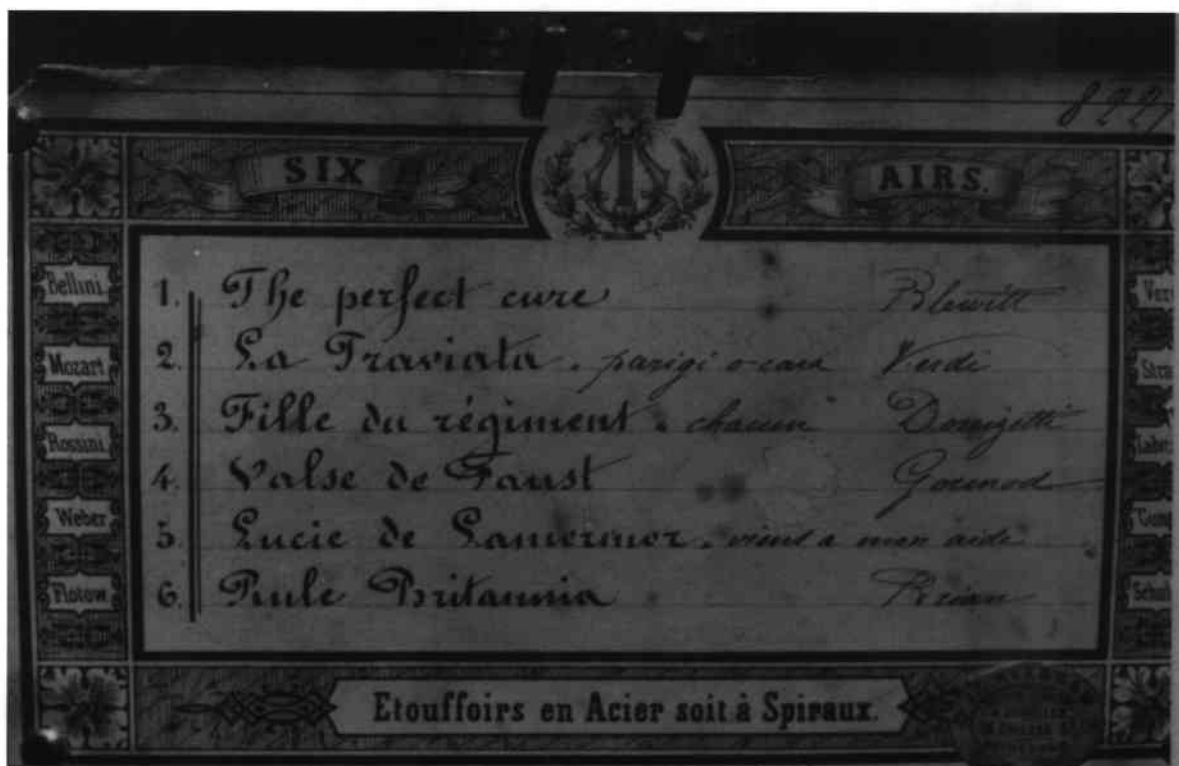 8227
SIX AIRS.
Bellini.
Mozart
Rossini
Weber
Flotow
1. The perfect cure Blewitt
2. La Traviata. parigi o cara Verdi
3. Fille du régiment. chacun Donizetti
4. Valse de Faust Gounod
5. Lucie de Lamermor. vient a mon aide
6. Rule Britannia
Etouffoirs en Acier soit à Spiraux.